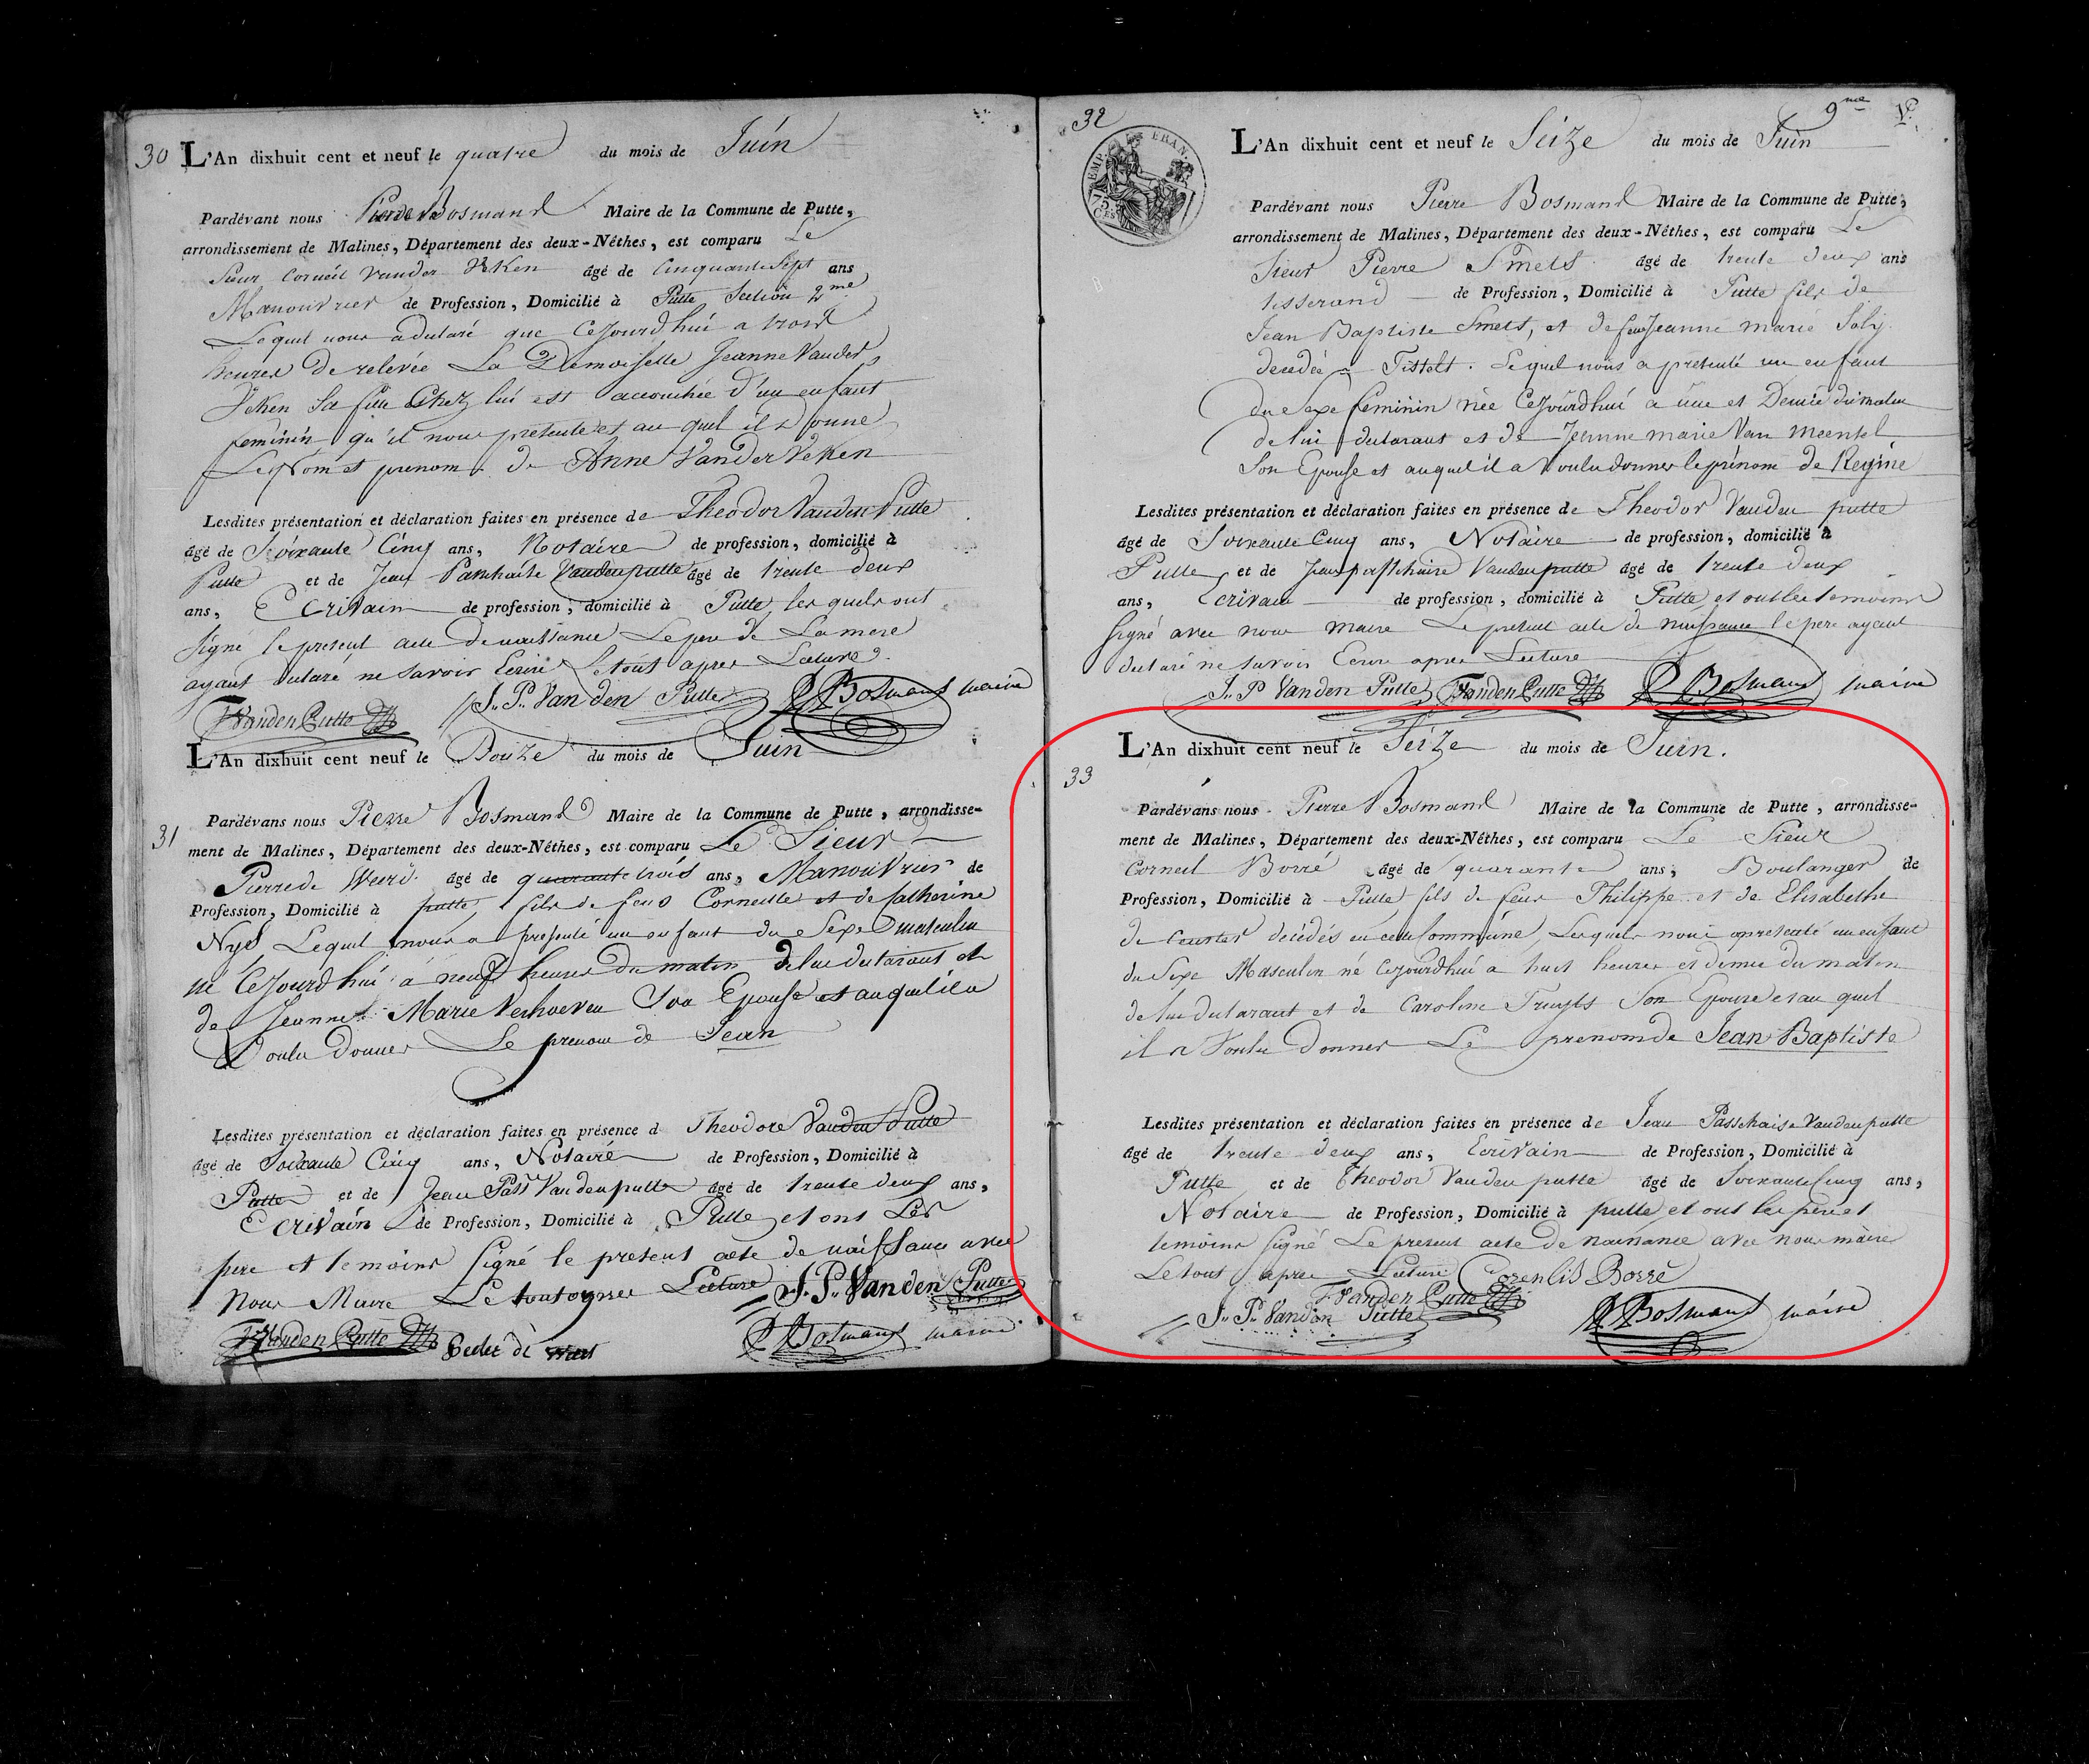 30 L'An dixhuit cent et neuf le quatre du mois de Juin
Pardévant nous Pierre Bosmans Maire de la Commune de Putte,
arrondissement de Malines, Département des deux-Néthes, est comparu Le
Sieur Corneil Vander Veken âgé de Cinquante Sept ans
Manouvrier de Profession, Domicilié à Putte Section 2me
Lequel nous a declaré que Cejourd'hui a trois
heures de relevée La Demoiselle Jeanne Vander
Veken Sa fille Chez lui est accouchée d'un enfant
feminin qu'il nous presente et au quel il donne
Le Nom et prenom de Anne Vander Veken
Lesdites présentation et déclaration faites en présence de Theodor Vanden Putte
âgé de Soixante Cinq ans, Notaire de profession, domicilié à
Putte et de Jean Paschaise Vandenputte âgé de trente deux
ans, Ecrivain de profession, domicilié à Putte, les quels ont
Signé le present acte de naissance Le pere de La mere
ayant declaré ne savoir Ecrire Le tout apres Lecture
J. P. Van den Putte P Bosmans maire
TVanden Putte
L'An dixhuit cent neuf le Douze du mois de Juin
31 Pardévans nous Pierre Bosmans Maire de la Commune de Putte, arrondisse-
ment de Malines, Département des deux-Néthes, est comparu Le Sieur
Pierre de Weerd âgé de quarante trois ans, Manouvrier de
Profession, Domicilié à putte, fils de feus Corneille et de Catherine
Nys Lequel nous a presenté un enfant du Sexe masculin
né Cejourd'hui a neuf heures du matin de lui declarant et
de Jeanne Marie Verhoeven Son Epouse et au quel il a
Voulu donner Le prenom de Jean
Lesdites présentation et déclaration faites en présence d Theodore Vanden Putte
âgé de Soixante Cinq ans, Notaire de Profession, Domicilié à
Putte et de Jean Pass Vandenputte âgé de trente deux ans,
Ecrivain de Profession, Domicilié à Putte et ont Les
pere et temoins Signé le present acte de naissance avec
Nous Maire Le tout apres Lecture J. P. Van den Putte
TVanden Putte Peeter de P Bosmans maire
32 9me
EMP. FRAN.
75 CES
L'An dixhuit cent et neuf le Seize du mois de Juin
Pardévant nous Pierre Bosmans Maire de la Commune de Putte,
arrondissement de Malines, Département des deux-Néthes, est comparu Le
Sieur Pierre Smets âgé de trente deux ans
tisserand de Profession, Domicilié à Putte fils de
Jean Baptiste Smets, et de feue Jeanne marie
decedée a Lequel nous a presenté un enfant
du Sexe feminin née Cejourd'hui a une et Demie du matin
de lui declarant et de Jeanne marie Van
Son Epouse et auquel il a Voulu donner le prénom de Regine
Lesdites présentation et déclaration faites en présence de Theodor Vanden putte
âgé de Soixante Cinq ans, Notaire de profession, domicilié à
Putte et de Jean passchaise Vandenputte âgé de trente deux
ans, Ecrivain de profession, domicilié à Putte, et ont les temoins
Signé avec nous maire Le present acte de naissance le pere ayant
declaré ne savoir Ecrire apres Lecture
J. P Vanden Putte TVanden Putte P Bosmans maire
L'An dixhuit cent neuf le Seize du mois de Juin.
33
Pardévans nous Pierre Bosmans Maire de la Commune de Putte, arrondisse-
ment de Malines, Département des deux-Néthes, est comparu Le Sieur
Corneil Borré âgé de quarante ans, Boulanger de
Profession, Domicilié à Putte fils de feus Philippe et de Elisabethe
de Ceuster decédés en cette Commune, Lequel nous a presenté un enfant
du Sexe Masculin né Cejourd'hui a huit heures et demie du matin
de lui declarant et de Caroline Truyts Son Epouse et au quel
il a Voulu Donner Le prenom de Jean Baptiste
Lesdites présentation et déclaration faites en présence de Jean Passchaise Vandenputte
âgé de trente deux ans, Ecrivain de Profession, Domicilié à
Putte et de Theodor Vanden putte âgé de Soixante Cinq ans,
Notaire de Profession, Domicilié à putte et ont les pere et
temoins signé Le present acte de naissance avec nous maire
Le tout apres Lecture Corenlis Borré
TVanden Putte
J. P. Vanden Putte P Bosmans maire